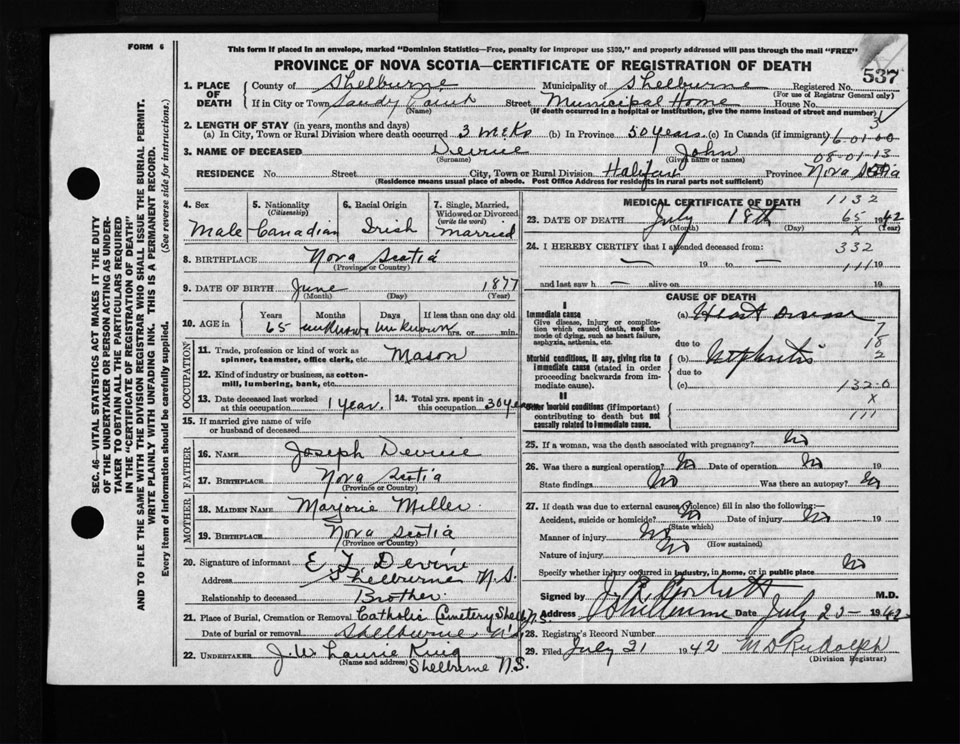 FORM 6
This form if placed in an envelope, marked "Dominion Statistics—Free, penalty for improper use $300," and properly addressed will pass through the mail "FREE"
PROVINCE OF NOVA SCOTIA—CERTIFICATE OF REGISTRATION OF DEATH
537
1. PLACE OF DEATH
County of Shelburne Municipality of Shelburne Registered No.
(For use of Registrar General only)
If in City or Town Sandy Point Street Municipal Home House No.
(Name) (If death occurred in a hospital or institution, give the name instead of street and number)
2. LENGTH OF STAY (in years, months and days)
(a) In City, Town or Rural Division where death occurred 3 wcks (b) In Province 50 years. (c) In Canada (if immigrant)
76-01-00
3. NAME OF DECEASED Devine John
(Surname) (Given name or names)
08-01-13
RESIDENCE No. Street City, Town or Rural Division Halifax Province Nova Scotia
(Residence means usual place of abode. Post Office Address for residents in rural parts not sufficient)
4. Sex Male
5. Nationality (Citizenship) Canadian
6. Racial Origin Irish
7. Single, Married, Widowed or Divorced (write the word) Married
8. BIRTHPLACE Nova Scotia
(Province or Country)
9. DATE OF BIRTH June 1877
(Month) (Day) (Year)
10. AGE in Years Months Days If less than one day old
65 unknown unknown hrs. or min.
OCCUPATION
11. Trade, profession or kind of work as spinner, teamster, office clerk, etc. Mason
12. Kind of industry or business, as cotton-mill, lumbering, bank, etc.
13. Date deceased last worked at this occupation 1 year.
14. Total yrs. spent in this occupation 30 years
15. If married give name of wife or husband of deceased
FATHER
16. NAME Joseph Devine
17. BIRTHPLACE Nova Scotia
(Province or Country)
MOTHER
18. MAIDEN NAME Marjorie Miller
19. BIRTHPLACE Nova Scotia
(Province or Country)
20. Signature of informant E J Devine
Address Shelburne N.S.
Relationship to deceased Brother
21. Place of Burial, Cremation or Removal Catholic Cemetery Shelb N.S.
Date of burial or removal Shelburne
22. UNDERTAKER J. W. Laurie King
(Name and address) Shelburne N.S.
MEDICAL CERTIFICATE OF DEATH 1132
23. DATE OF DEATH July 18th 65 1942
(Month) (Day) x (Year)
24. I HEREBY CERTIFY that I attended deceased from: 332
— 19 to — 111 19
and last saw h — alive on 19
CAUSE OF DEATH
I
Immediate cause
Give disease, injury or complication which caused death, not the mode of dying, such as heart failure, asphyxia, asthenia, etc.
(a) Heart Disease
due to
Morbid conditions, if any, giving rise to immediate cause (stated in order proceeding backwards from immediate cause).
(b) Nephritis
due to
(c)
7
18
2
132.0
x
111
II
Other morbid conditions (if important) contributing to death but not causally related to immediate cause.
25. If a woman, was the death associated with pregnancy? No
26. Was there a surgical operation? No Date of operation No 19
State findings No Was there an autopsy? No
27. If death was due to external causes (violence) fill in also the following:—
Accident, suicide or homicide? No Date of injury No 19
(State which)
Manner of injury No
(How sustained)
Nature of injury No
Specify whether injury occurred in industry, in home, or in public place No
Signed by M.D.
Address Shelburne Date July 20- 1942
28. Registrar's Record Number
29. Filed July 21 1942 M D Rudolph
(Division Registrar)
SEC. 46—VITAL STATISTICS ACT MAKES IT THE DUTY
OF THE UNDERTAKER OR PERSON ACTING AS UNDER-
TAKER TO OBTAIN ALL THE PARTICULARS REQUIRED
IN THE "CERTIFICATE OF REGISTRATION OF DEATH"
AND TO FILE THE SAME WITH THE DIVISION REGISTRAR WHO SHALL ISSUE THE BURIAL PERMIT.
WRITE PLAINLY WITH UNFADING INK. THIS IS A PERMANENT RECORD.
Every item of information should be carefully supplied. (See reverse side for instructions.)